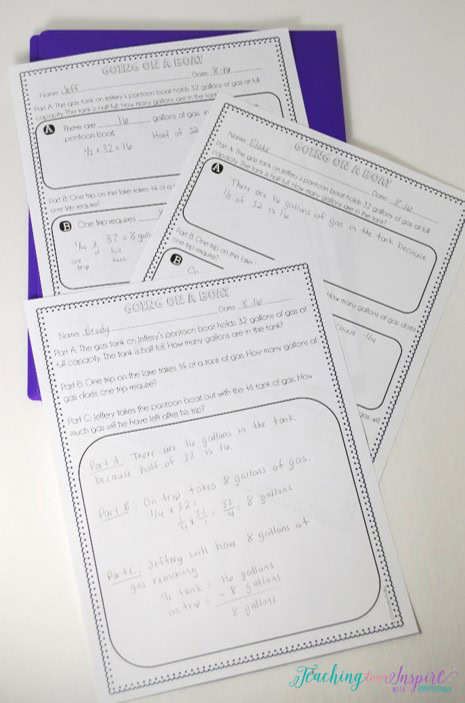 GOING ON A BOAT
Name: Jeff Date: 8-16
Part A: The gas tank on Jeffery's pontoon boat holds 32 gallons of gas at full
capacity. The tank is half full. How many gallons are in the tank?
A There are 16 gallons of gas in
pontoon boat. Half of 32
1/2 x 32 = 16
Part B: One trip on the lake takes 1/4 of a
one trip require?
B One trip requires 8
1/4 x 32 = 8 gall
one of full
trip tank
GOING ON A BOAT
Name: Blake Date: 8-16
Part A: The gas tank on Jeffery's pontoon boat holds 32 gallons of gas at full
capacity. The tank is half full. How many gallons are in the tank?
A There are 16 gallons of gas in the tank because
1/2 of 32 is 16
Part B: One trip on the lake
How many gallons of gas does
one trip require?
B
cause 1/4
GOING ON A BOAT
Name: Brady Date: 8-16
Part A: The gas tank on Jeffery's pontoon boat holds 32 gallons of gas at
full capacity. The tank is half full. How many gallons are in the tank?
Part B: One trip on the lake takes 1/4 of a tank of gas. How many gallons of
gas does one trip require?
Part C: Jeffery takes the pontoon boat out with the 1/2 tank of gas. How
much gas will he have left after his trip?
Part A: There are 16 gallons in the tank
because half of 32 is 16.
Part B: On trip takes 8 gallons of gas.
1/4 x 32 =
1/4 x 32/1 = 32/4 = 8 gallons
Part C: Jeffery will have 8 gallons of
gas remaining.
1/2 tank = 16 gallons
on trip = - 8 gallons
8 gallons
Teaching to Inspire
WITH